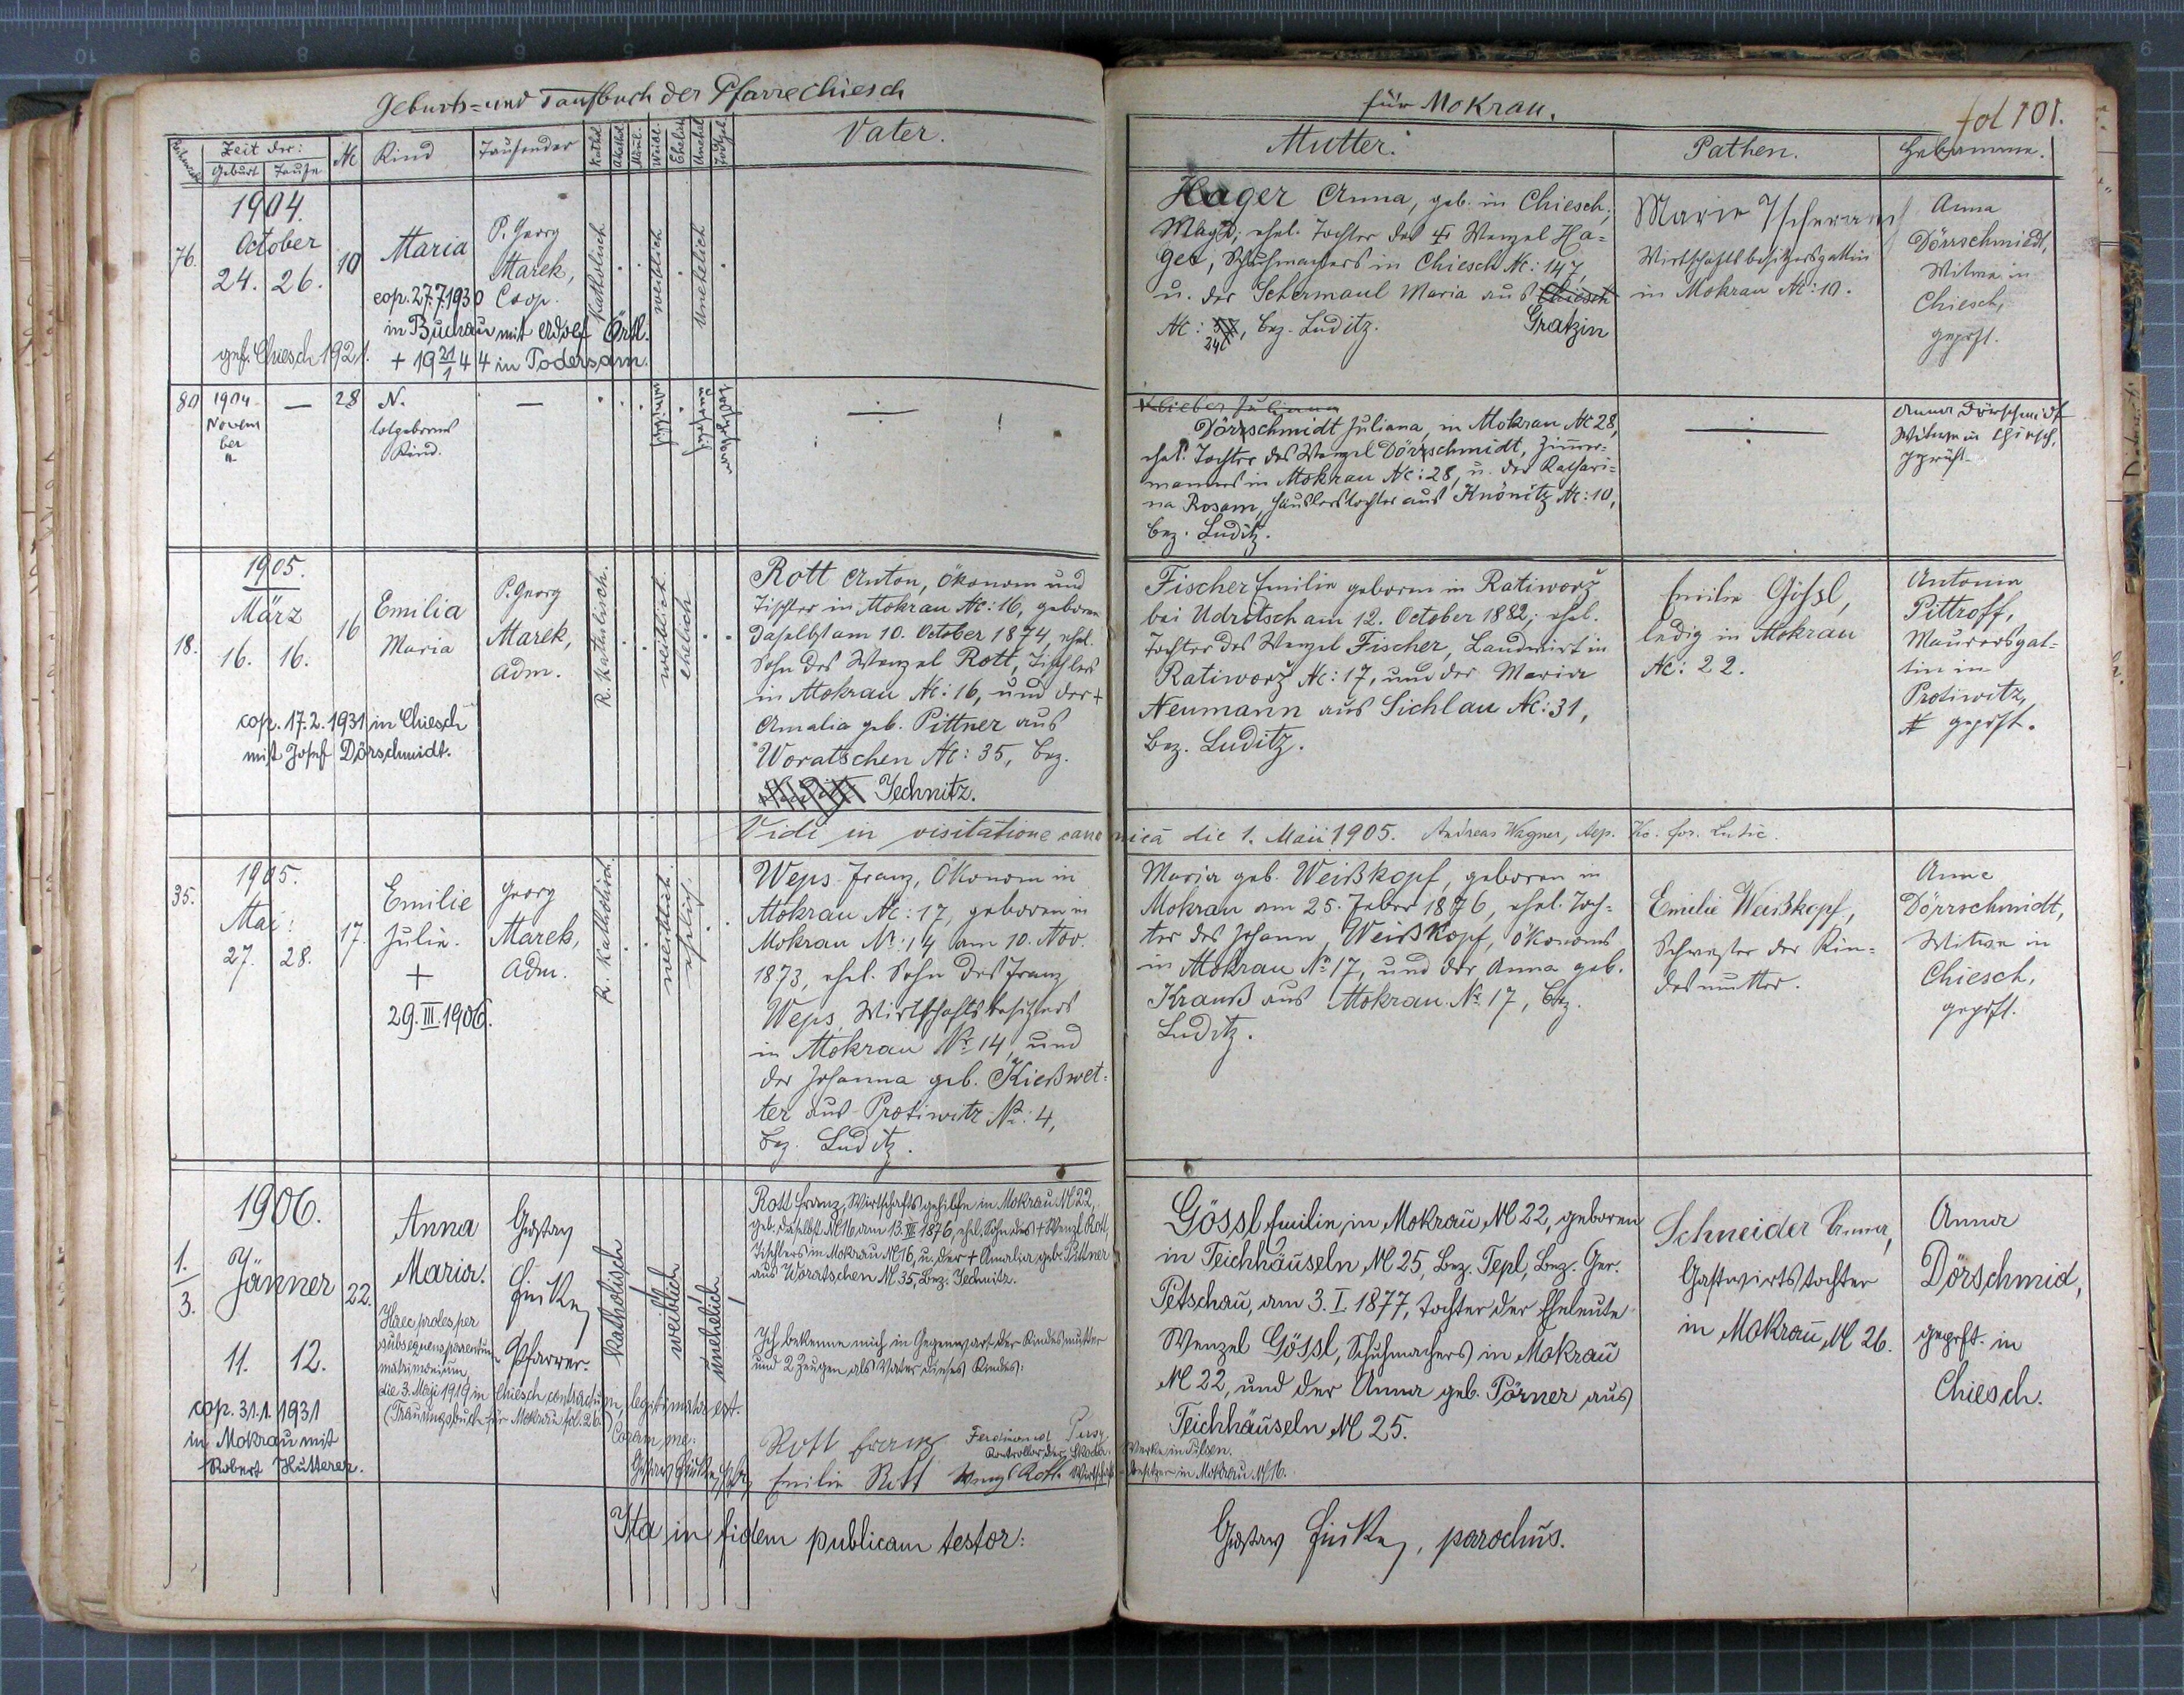 Geburts- und Taufbuch der Pfarre Chiesch
für Mokrau.
fol 101.
Zeit der:
Geburt Taufe
Nc
Kind
Taufender
Kathol.
Akathol.
Männl.
Weibl.
Ehelich
Unehel.
Todtgeb.
Vater.
Mutter.
Pathen.
Hebamme.
76.
1904.
October
24. 26.
10
Maria
cop. 27.7.1930
in Buchau mit Adolf Örtl.
gef. Chiesch 1921.
+ 19 21/1 44 in Podersam.
P. Georg
Marek,
Coop.
Katholisch
weiblich
Unehelich
Hager Anna, geb. in Chiesch,
Magd; ehel. Tochter des Wenzel Ha=
ger, Schuhmachers in Chiesch Nc: 147,
u. der Schermaul Maria aus Chiesch
Gratzin
Nc: 24, Bez. Luditz.
Marie
Wirtschaftsbesitzersgattin
in Mokrau Nc: 10.
Anna
Dörrschmiedt,
Witwe in
Chiesch,
geprft.
80
1904
Novem
ber
—
28
N.
totgeborenes
Kind.
—
Juliana
Dörrschmidt Juliana, in Mokrau Nc 28,
ehel. Tochter des Wenzel Dörrschmidt, Zimmer=
mannes in Mokrau Nc: 28, u. der Kathari=
na Rosam, Häuslerstochter aus Knönitz Nc: 10,
Bez. Luditz.
Anna Dörschmidt
Witwe in Chiesch,
geprüft
1905.
18.
März
16. 16.
16
Emilia
Maria
cop. 17.2.1931 in Chiesch
mit Josef Dörschmidt.
P. Georg
Marek,
adm.
R. Katholisch.
weiblich.
ehelich
Rott Anton, Ökonom und
Tischler in Mokrau Nc: 16, geboren
daselbst am 10. October 1874, ehel.
Sohn des Wenzel Rott, Tischlers
in Mokrau Nc: 16, und der +
Amalia geb. Pittner aus
Woratschen Nc: 35, Bez.
Jechnitz.
Fischer Emilie geboren in Ratiworž
bei Udritsch am 12. October 1882; ehel.
Tochter des Wenzel Fischer, Landwirt in
Ratiworž Nc: 17, und der Maria
Neumann aus Sichlau Nc: 31,
Bez. Luditz.
Emilie Gössl,
ledig in Mokrau
Nc: 22.
Antonia
Pittroff,
Maurersgat=
tin in
Protiwitz,
geprft.
Vidi in visitatione canonica die 1. Maii 1905. Andreas Wagner,
35.
1905.
Mai:
27. 28.
17.
Emilie
Julie.
+
29.III.1906.
Georg
Marek,
Adm.
R. Katholisch.
weiblich.
ehelich.
Weps Franz, Ökonom in
Mokrau Nc: 17, geboren in
Mokrau No: 14 am 10. Nov.
1873, ehel. Sohn des Franz
Weps, Wirtschaftsbesitzers
in Mokrau No 14, und
der Johanna geb. Kießwet=
ter aus Protiwitz No: 4,
Bez. Luditz.
Maria geb. Weißkopf, geboren in
Mokrau am 25. Feber 1876, ehel. Toch=
ter des Johann Weißkopf, Ökonoms
in Mokrau No 17, und der Anna geb.
Krauß aus Mokrau No 17, Bez.
Luditz.
Emilie Weißkopf,
Schwester der Kin=
desmutter.
Anna
Dörrschmidt,
Witwe in
Chiesch,
geprft.
1906.
1.
3.
Jänner
11. 12.
22.
cop. 31.1.1931
in Mokrau mit
Robert Hutterer.
Anna
Maria.
Haec proles per
subsequens parentum
matrimonium,
die 3. Maji 1919 in Chiesch contractum, legitimata est.
(Trauungsbuch für Mokrau fol. 26.)
Coram me:
Gustav
Pfarrer.
Katholisch
weiblich
unehelich
Rott Franz, Wirtschaftsgehilfe in Mokrau Nc 22,
geb. daselbst Nc 16 am 13. III 1876, ehel. Sohn des + Wenzl Rott,
Tischlers in Mokrau Nc 16, u. der + Amalia geb. Pittner
aus Woratschen Nc 35, Bez. Jechnitz.
Ich bekenne mich in Gegenwart der Kindesmutter
und 2 Zeugen als Vater dieses Kindes:
Rott Franz Ferdinand
Kontrollor der Skoda-Werke in Pilsen.
Emilie Rott Wenzl Rott Wirtschaftsbesitzer in Mokrau Nc 16.
Gössl Emilie, in Mokrau Nc 22, geboren
in Teichhäuseln, Nc 25, Bez. Tepl, Bez. Ger.
Petschau, am 3. I. 1877, Tochter der Eheleute
Wenzel Gössl, Schuhmachers in Mokrau
Nc 22, und der Anna geb. Pörner aus
Teichhäuseln Nc 25.
Schneider Anna,
Gastwirtstochter
in Mokrau, Nc 26.
Anna
Dörschmid,
geprft. in
Chiesch.
Ita in fidem publicam testor:
Gustav parochus.